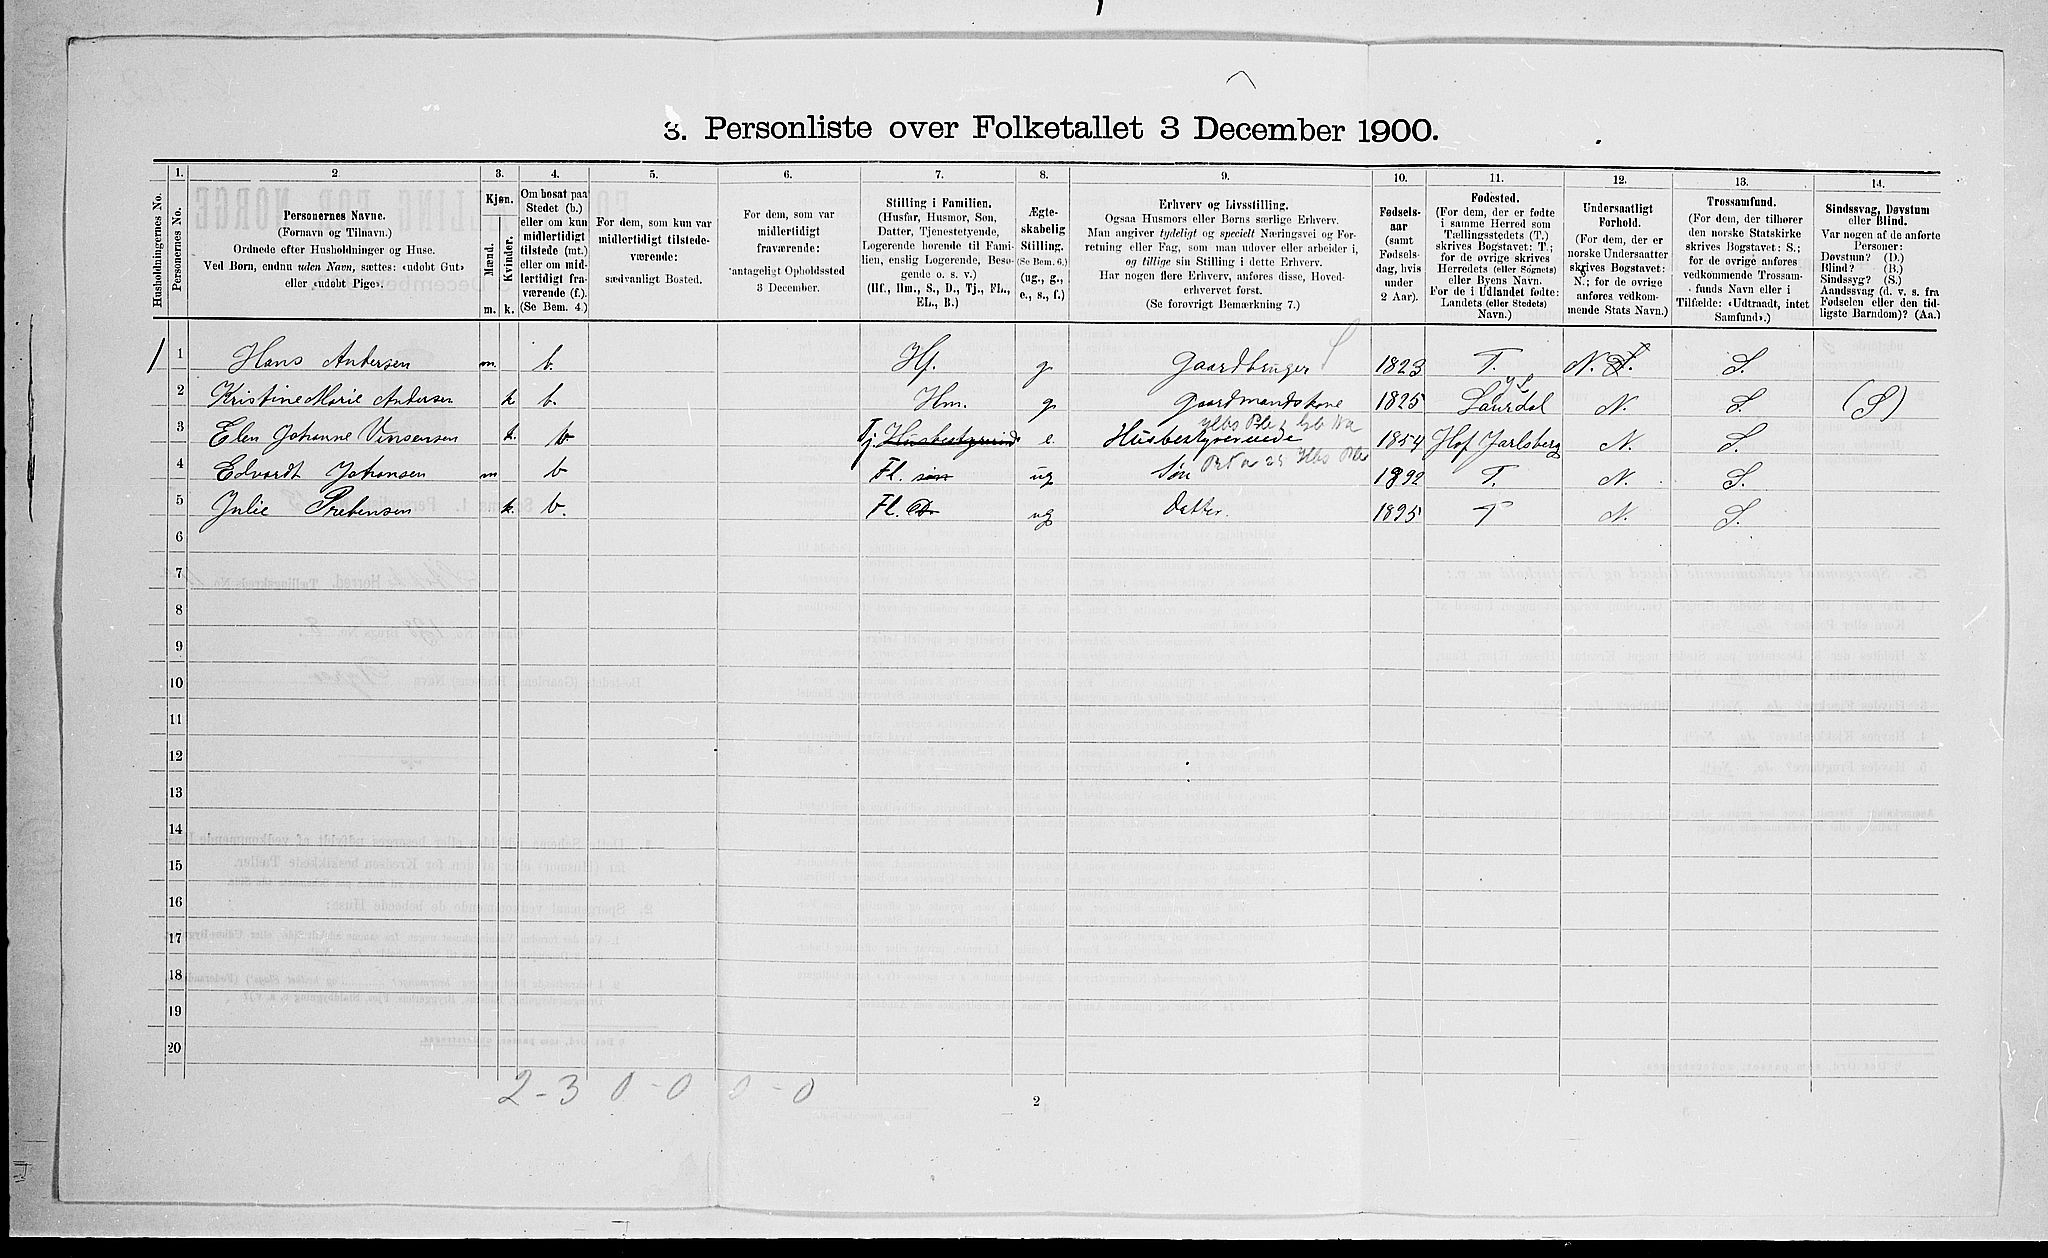 3. Personliste over Folketallet 3 December 1900.
Husholdningernes No.
1.
Personernes No.
2
Personernes Navne.
(Fornavn og Tilnavn.)
Ordnede efter Husholdninger og Huse.
Ved Børn, endnu uden Navn, sættes: «udøbt Gut»
eller «udøbt Pige».
3.
Kjøn.
Mænd.
Kvinder.
m.
k.
4.
Om bosat paa
Stedet (b.)
eller om kun
midlertidigt
tilstede (mt.)
eller om mid-
lertidigt fra-
værende (f.).
(Se Bem. 4.)
5.
For dem, som kun var
midlertidigt tilstede-
værende:
sædvanligt Bosted.
6.
For dem, som var
midlertidigt
fraværende:
antageligt Opholdssted
3 December.
7.
Stilling i Familien.
(Husfar, Husmor, Søn,
Datter, Tjenestetyende,
Logerende hørende til Fami-
lien, enslig Logerende, Besø-
gende o. s. v.)
(Hf., Hm., S., D., Tj., FL.,
EL., B.)
8.
Ægte-
skabelig
Stilling.
(Se Bem. 6.)
(ug., g.,
e., s., f.)
9.
Erhverv og Livsstilling.
Ogsaa Husmors eller Børns særlige Erhverv.
Man angiver tydeligt og specielt Næringsvei og For-
retning eller Fag, som man udøver eller arbeider i,
og tillige sin Stilling i dette Erhverv.
Har nogen flere Erhverv, anføres disse, Hoved-
erhvervet først.
(Se forøvrigt Bemærkning 7.)
10.
Fødsels-
aar
(samt
Fødsels-
dag, hvis
under
2 Aar).
11.
Fødested.
(For dem, der er fødte
i samme Herred som
Tællingsstedets (T.)
skrives Bogstavet: T.;
for de øvrige skrives
Herredets (eller Sognets)
eller Byens Navn.
For de i Udlandet fødte:
Landets (eller Stedets)
Navn.)
12.
Undersaatligt
Forhold.
(For dem, der er
norske Undersaatter
skrives Bogstavet:
N.; for de øvrige
anføres vedkom-
mende Stats Navn.)
13.
Trossamfund.
(For dem, der tilhører
den norske Statskirke
skrives Bogstavet: S.;
for de øvrige anføres
vedkommende Trossam-
funds Navn eller i
Tilfælde: «Udtraadt, intet
Samfund».)
14.
Sindssvag, Døvstum
eller Blind.
Var nogen af de anførte
Personer:
Døvstum? (D.)
Blind? (B.)
Sindssyg? (S.)
Aandssvag (d. v. s. fra
Fødselen eller den tid-
ligste Barndom)? (Aa.)
1 1 Hans Andersen m. b. Hf. g Gaardbruger 1823 T. N. S.
2 Kristine Marie Andersen k b. Hm. g Gaardmandskone 1825 Laurdal N. S. (S)
3 Elen Johanne Vinsensen k. b Tj. Husbestyrerinde e. Husbestyrerinde 1854 Hof Jarlsberg N. S.
4 Edvardt Johansen m b Fl. søn ug Søn 1892 T. N. S.
5 Julie Prebensen k. b. Fl. D. ug Datter. 1895 T N. S.
6
7
8
9
10
11
12
13
14
15
16
17
18
19
20
2-3 0-0 0-0
2